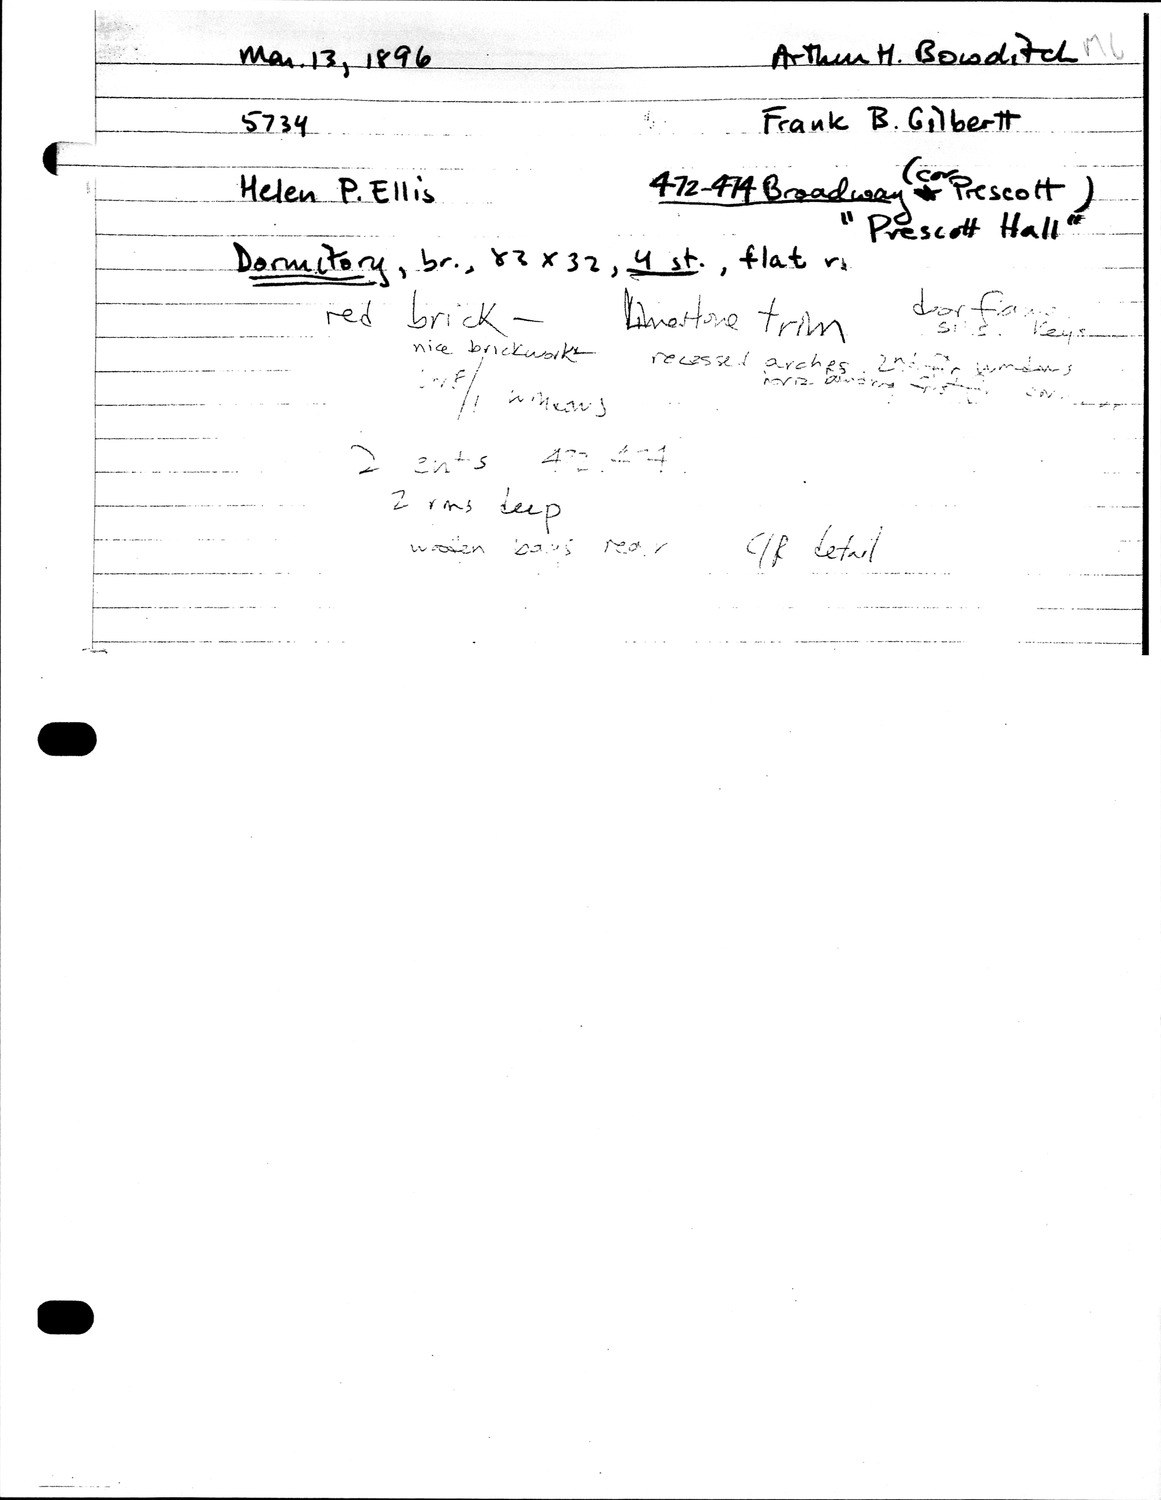 Mar. 13, 1896 Arthur H. Bowditch M6
5734 Frank B. Gilbertt
Helen P. Ellis 472-474 Broadway (cor Prescott)
"Prescott Hall"
Dormitory, br., 82 x 32, 4 st., flat r.
red brick — limestone trim door
keys
nice brickwork recessed arches 2nd windows
windows
2 ents 472-474
2 rms deep
wooden bays rear C/R detail